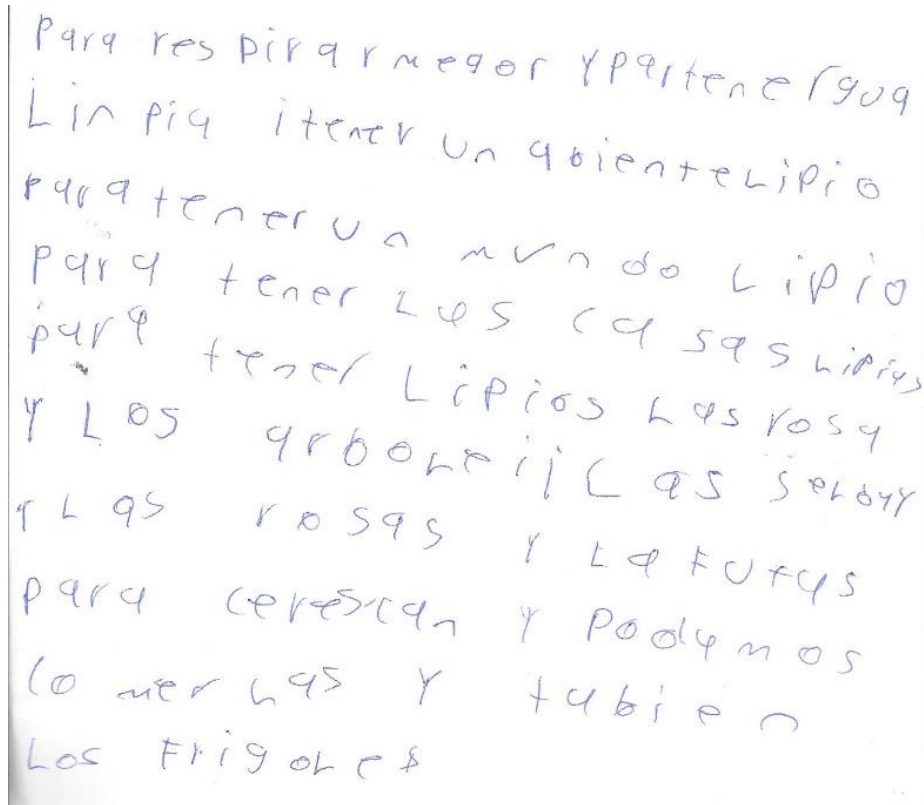 Para res pirar megor y partener gua
Linpia itener un abienteLipio
para tener un mundo Lipio
Para tener Las casas Lipias
para tener Lipios Las rosa
y Los arboLe ij Las
y Las rosas y La Futas
para cerescan y Podamos
comerLas y tabien
Los FrigoLes